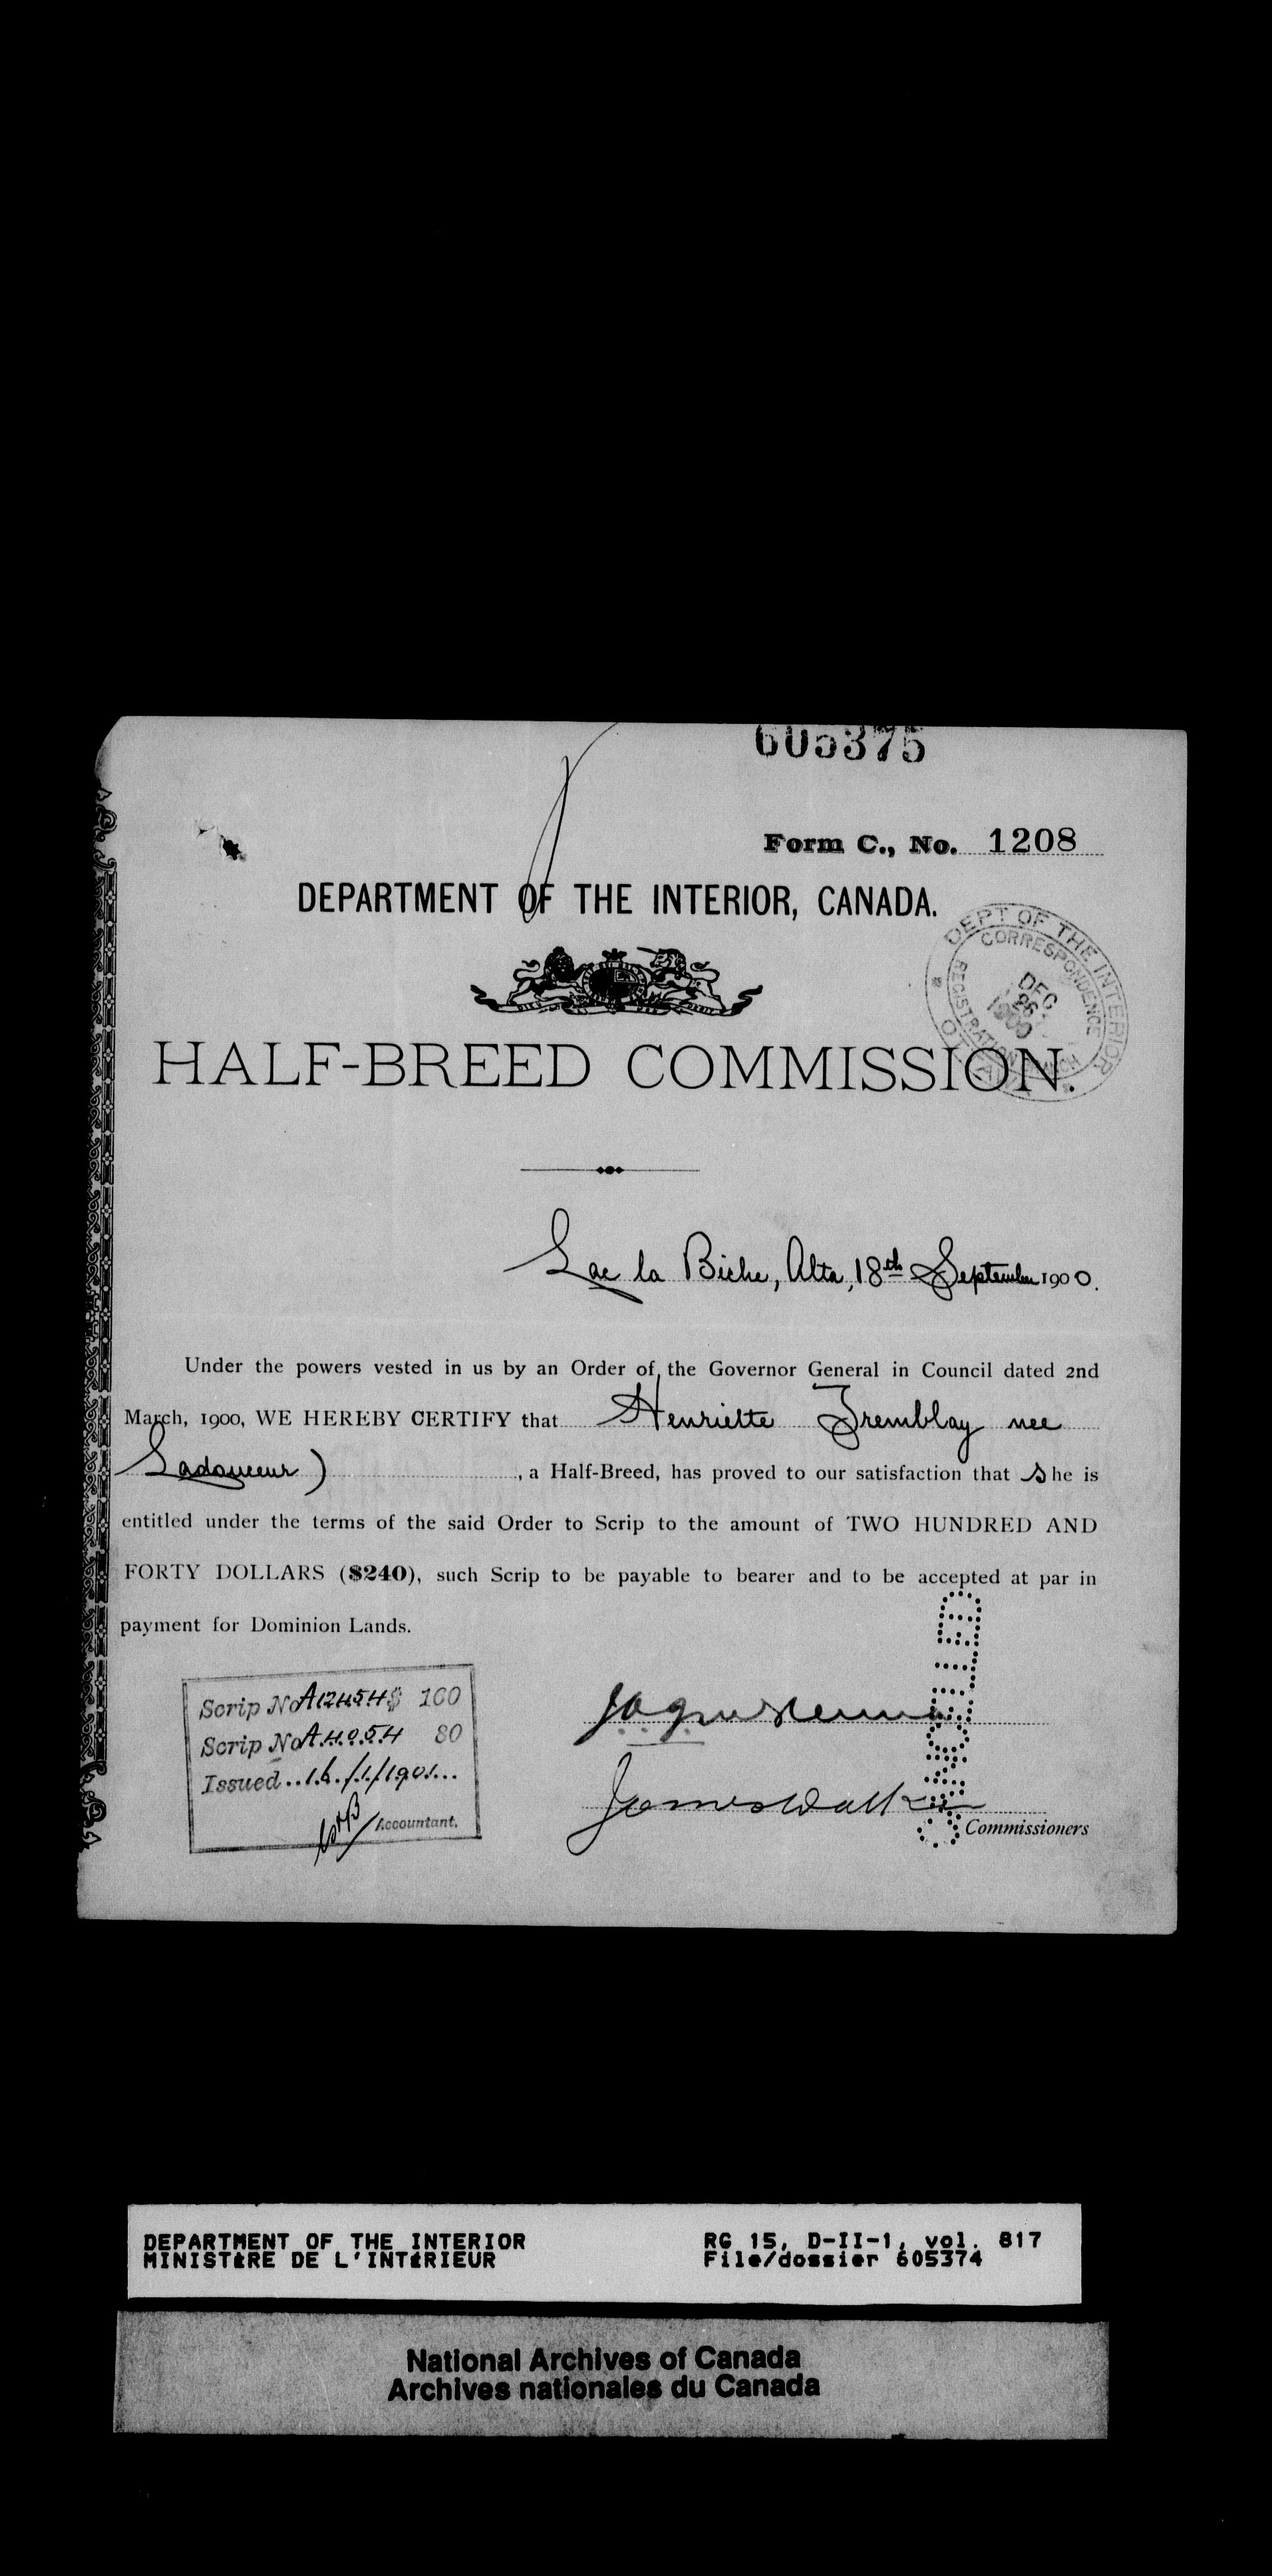 605375
Form C., No. 1208
DEPARTMENT OF THE INTERIOR, CANADA.
DEPT OF THE INTERIOR
CORRESPONDENCE
REGISTRATION
DEC
26
1900
HALF-BREED COMMISSION.
Lac la Biche, Alta, 18th September 1900.
Under the powers vested in us by an Order of the Governor General in Council dated 2nd
March, 1900, WE HEREBY CERTIFY that Henriette Tremblay nee
Ladouceur) , a Half-Breed, has proved to our satisfaction that She is
entitled under the terms of the said Order to Scrip to the amount of TWO HUNDRED AND
FORTY DOLLARS ($240), such Scrip to be payable to bearer and to be accepted at par in
payment for Dominion Lands.
Scrip No A12454 $ 160
Scrip No A4054 80
Issued 16/1/1901
Accountant.
James Walker
Commissioners
CANCELLED
DEPARTMENT OF THE INTERIOR
MINISTÈRE DE L'INTÉRIEUR
RG 15, D-II-1, vol. 817
File/dossier 605374
National Archives of Canada
Archives nationales du Canada